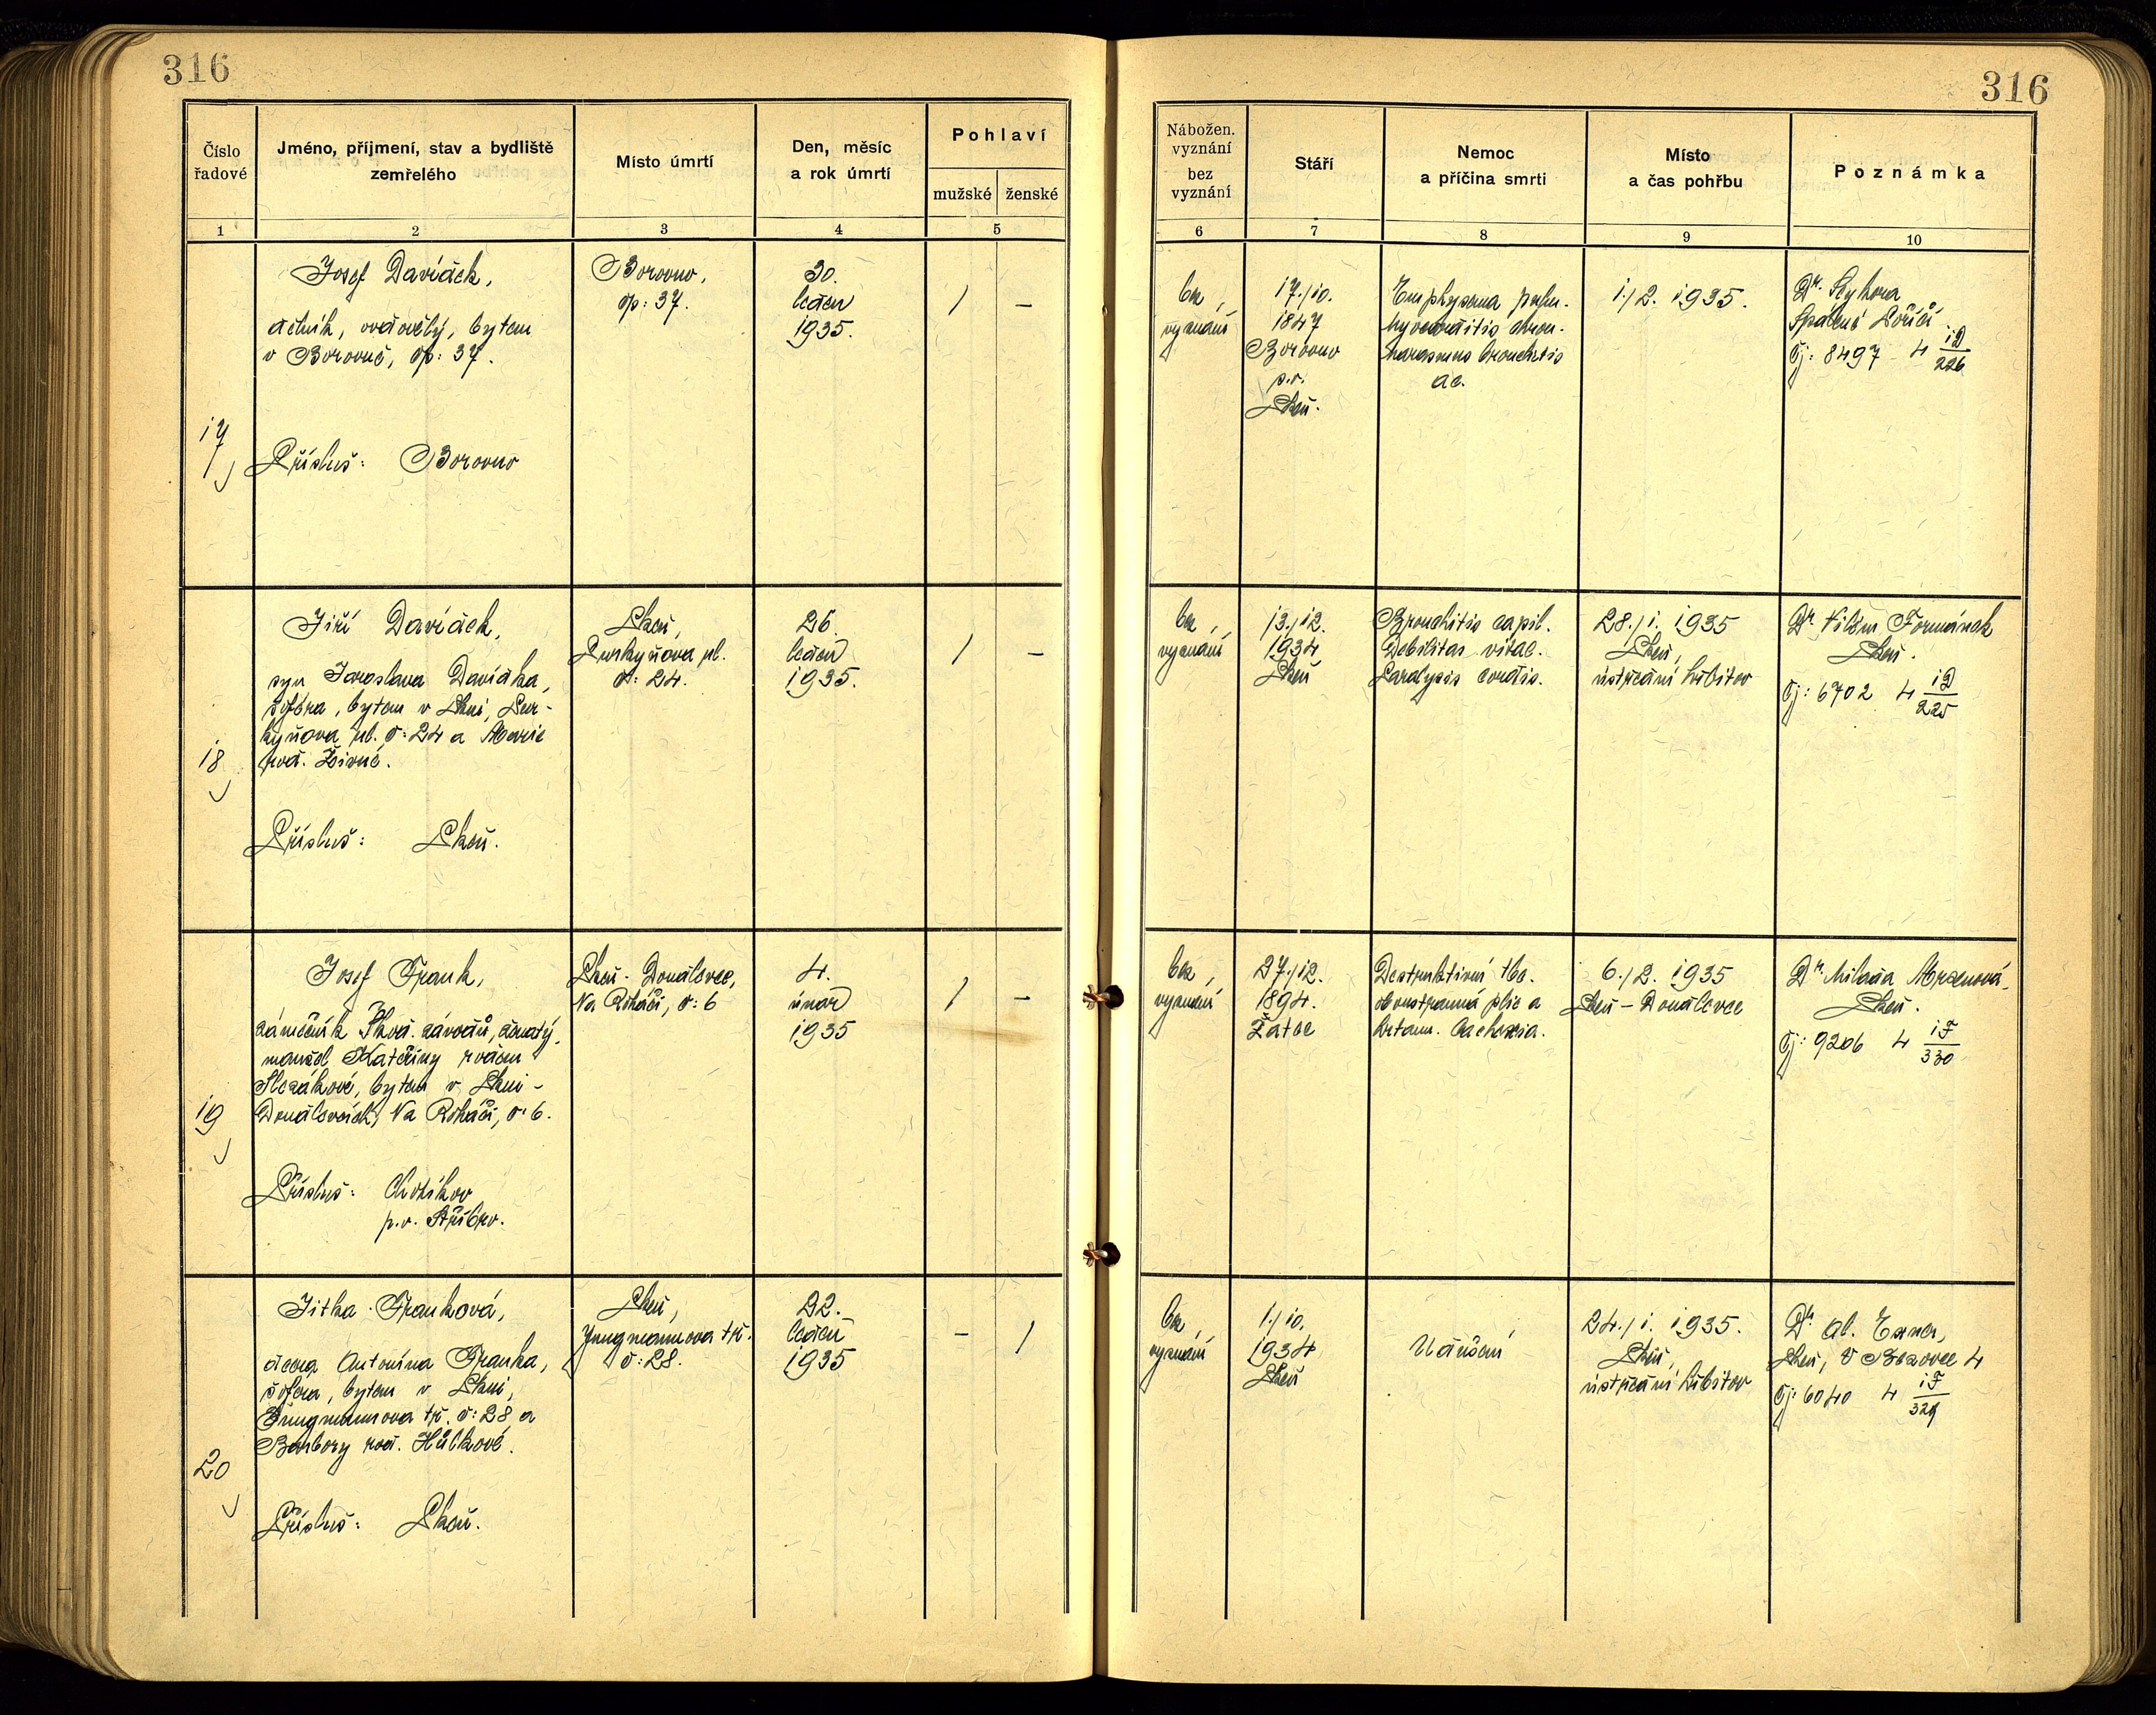 316
316
Číslo řadové
Jméno, příjmení, stav a bydliště zemřelého
Místo úmrtí
Den, měsíc a rok úmrtí
Pohlaví
mužské
ženské
1
2
3
4
5
Nábožen. vyznání
bez vyznání
Stáří
Nemoc a příčina smrti
Místo a čas pohřbu
Poznámka
6
7
8
9
10
17
Josef Davídek,
dělník, ovdovělý, bytem
v Borovně, čp: 37.
Přísluš: Borovno
Borovno,
čp: 37.
30.
leden
1935.
/
–
bez
vyznání
17./10.
1847
Borovno
p.v.
Plzeň.
Emphysema pulm.
chron.
marasmus bronchitis
ac.
1./2. 1935.
Dr. Sýkora
Spálené Poříčí
čj: 8497 4 iD/226
18
Jiří Davídek,
syn Jaroslava Davídka,
šoféra, bytem v Plzni, Pur-
kyňova ul. č: 24 a Marie
rod. Živné.
Přísluš: Plzeň.
Plzeň,
Purkyňova ul.
č: 24.
26.
leden
1935.
/
–
bez
vyznání
13./12.
1934
Plzeň
Bronchitis capil.
Debilitas vitae.
Paralysis cordis.
28./1. 1935
Plzeň,
ústřední hřbitov
Dr. Vilém Formánek
Plzeň.
čj: 6702 4 iD/225
19
Josef Frank,
zámečník Škod. závodů, ženatý,
manžel Kateřiny rozen
Slezákové, bytem v Plzni-
Doudlevcích, Na Rokáči, č: 6.
Přísluš: Chotíkov
p.v. Stříbro.
Plzeň - Doudlevce,
Na Rokáči, č: 6
4.
únor
1935
/
–
bez
vyznání
27./12.
1894.
Žatec
Destruktivní tbc.
oboustranná plic a
hrtanu. Cachexia.
6./2. 1935
Plzeň – Doudlevce
Dr. Milada
Plzeň.
čj: 9206 4 iF/330
20
Jitka Franková,
dcera Antonína Franka,
šoféra, bytem v Plzni,
Jungmannova tř. č: 28 a
Barbory rod. Hůlkové.
Přísluš: Plzeň.
Plzeň,
Jungmannova tř.
č: 28.
22.
leden
1935
–
/
bez
vyznání
1./10.
1934
Plzeň
Udušení
24./1. 1935.
Plzeň,
ústřední hřbitov
Dr. Al. Exner,
Plzeň, V Bezovce 4
čj: 6040 4 iF/329